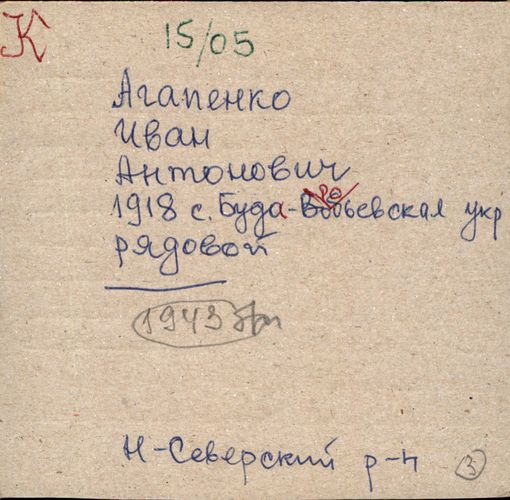 К
15/05
Агапенко
Иван
Антонович
1918 с. Буда-Воробьевская укр
рядовой
1943
Н-Северский р-н
3